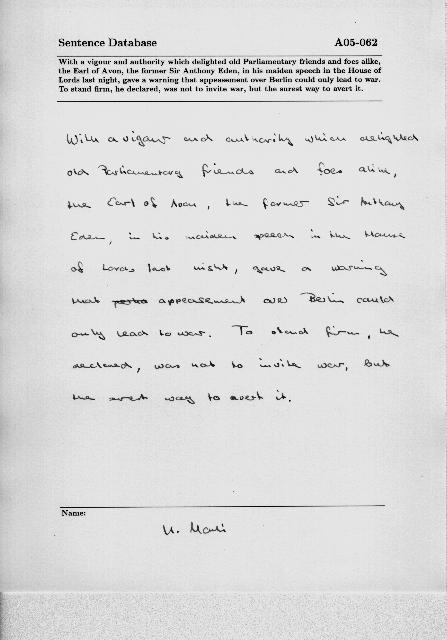 Sentence Database A05-062
With a vigour and authority which delighted old Parliamentary friends and foes alike,
the Earl of Avon, the former Sir Anthony Eden, in his maiden speech in the House of
Lords last night, gave a warning that appeasement over Berlin could only lead to war.
To stand firm, he declared, was not to invite war, but the surest way to avert it.
With a vigour and authority which delighted
old Parliamentary friends and foes alike,
the Earl of Avon, the former Sir Anthony
Eden, in his maiden speech in the House
of Lords last night, gave a warning
that appeasement over Berlin could
only lead to war. To stand firm, he
declared, was not to invite war, but
the surest way to avert it.
Name: